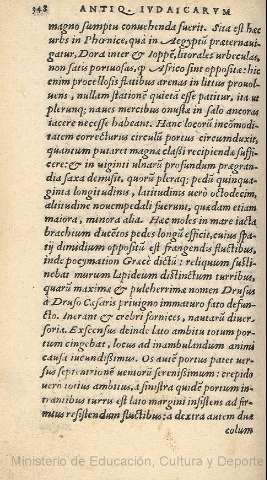 348 ANTIQ. IVDAICARVM
magno sumptu conuehenda fuerit. Sita est hæc
urbs in Phœnice, quà in Aegyptũ præternaui-
gatur, Dora inter & Ioppẽ, litorales urbeculas,
non satis portuosas, q̃ Africo sint opposite: hic
enim procellosis flatibus arenas in littus prouol-
uens, nullam stationẽ quietã esse patitur, ita ut
plerunq; naues mercibus onusta in salo ancoras
iacere necesse habeant. Hanc locorũ incõmodi-
tatem correcturus circulũ portus circumduxit,
quantum putaret magnæ classi recipiendæ suffi-
cere: & in uiginti ulnarũ profundum prægran-
dia saxa demisit, quorũ pleraq; pedũ quinqua-
ginta longitudinis, latitudinis uerò octodecim,
altitudine nouempedali fuerunt, quædam etiam
maiora, minora alia. Hæc moles in mare iacta
brachium ducẽtos pedes longũ effecit, cuius spa-
tij dimidium oppositũ est frangendis fluctibus,
inde pocymation Græcè dictũ: reliquum susti-
nebat murum lapideum distinctum turribus,
quarũ maximæ & pulcherrimæ nomen Drusus
à Druso Cæsaris priuigno immaturo fato defun-
cto. Inerant & crebri fornices, nautarũ diuer-
soria. Excensus deinde lato ambitu totum por-
tum cingebat, locus ad inambulandum animi
causa iucundissimus. Os autẽ portus patet uer-
sus septentrionẽ uentorũ serenissimum: crepido
uero totius ambitus, à sinistra quidẽ portum in-
trantibus turris est lato margini insistens ad fir-
mius resistendum fluctibus: à dextra autem duæ
colum
Ministerio de Educación, Cultura y Deporte